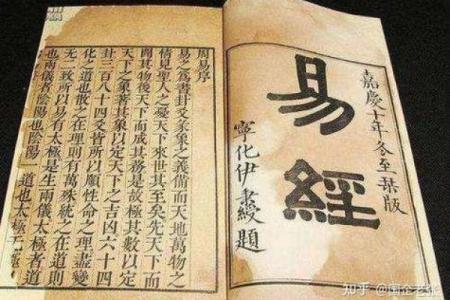 嘉慶十年冬至栞版
易經
寧化伊秉綬題
周易序
易之為書卦爻彖象之義備而天地萬物之
情見聖人之憂天下來世其至矣先天下而
開其物後天下而成其務是故極其數以定
天下之象著其象以定天下之吉凶六十四
卦三百八十四爻皆所以順性命之理盡變
化之道也散之在理則有萬殊統之在道則
无二致所以易有太極是生兩儀太極者道
也兩儀者陰陽也陰陽一道也太極无極
知乎 @国企老张